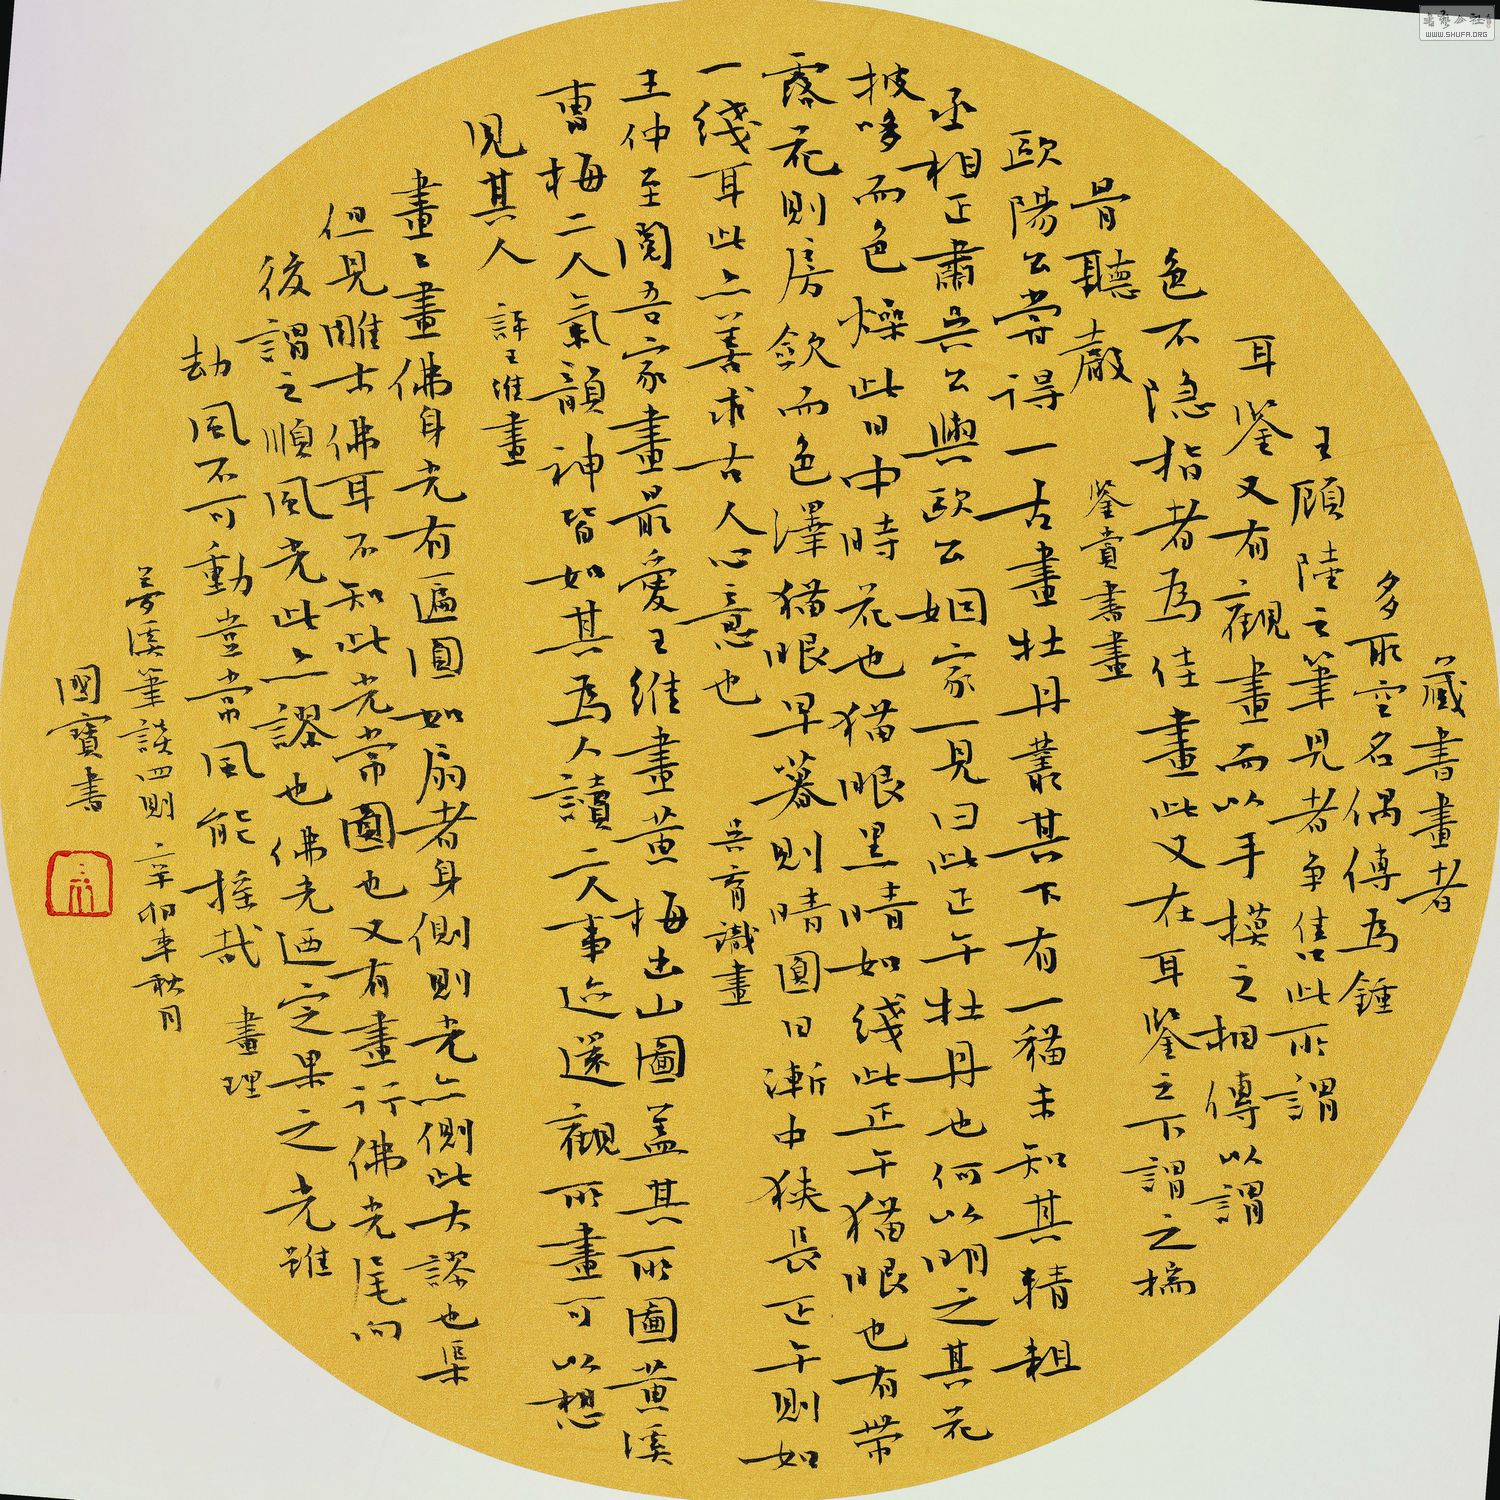 藏書畫者
多取空名偶傳為鍾
王顧陸之筆見者爭售此所謂
耳鑒又有觀畫而以手摸之相傳以謂
色不隐指者為佳畫此又在耳鑒之下謂之揣
骨聽聲
鑒賞書畫
歐陽公嘗得一古畫牡丹叢其下有一貓未知其精粗
丞相正肅吳公與歐公姻家一見曰此正午牡丹也何以明之其花
披哆而色燥此日中時花也猫眼黑睛如綫此正午猫眼也有带
露花則房斂而色澤猫眼早暮則睛圓日漸中狭長正午則如
一綫耳此亦善求古人心意也
吳育識畫
王仲至閱吾家畫最愛王維畫黄梅出山圖蓋其所圖黄溪
曹梅二人氣韻神皆如其為人讀二人事迹還觀所畫可以想
見其人
評王維畫
畫〻畫佛身光有遍圓如扇者身側則光亦側此大謬也渠
但見雕木佛耳不知此光常圓也又有畫行佛光尾向
後謂之順風光此亦謬也佛光迺定果之光雖
劫風不可動豈常風能摇哉
畫理
夢溪筆談四則 辛卯年秋月
國寶書
書法公社
WWW.SHUFA.ORG